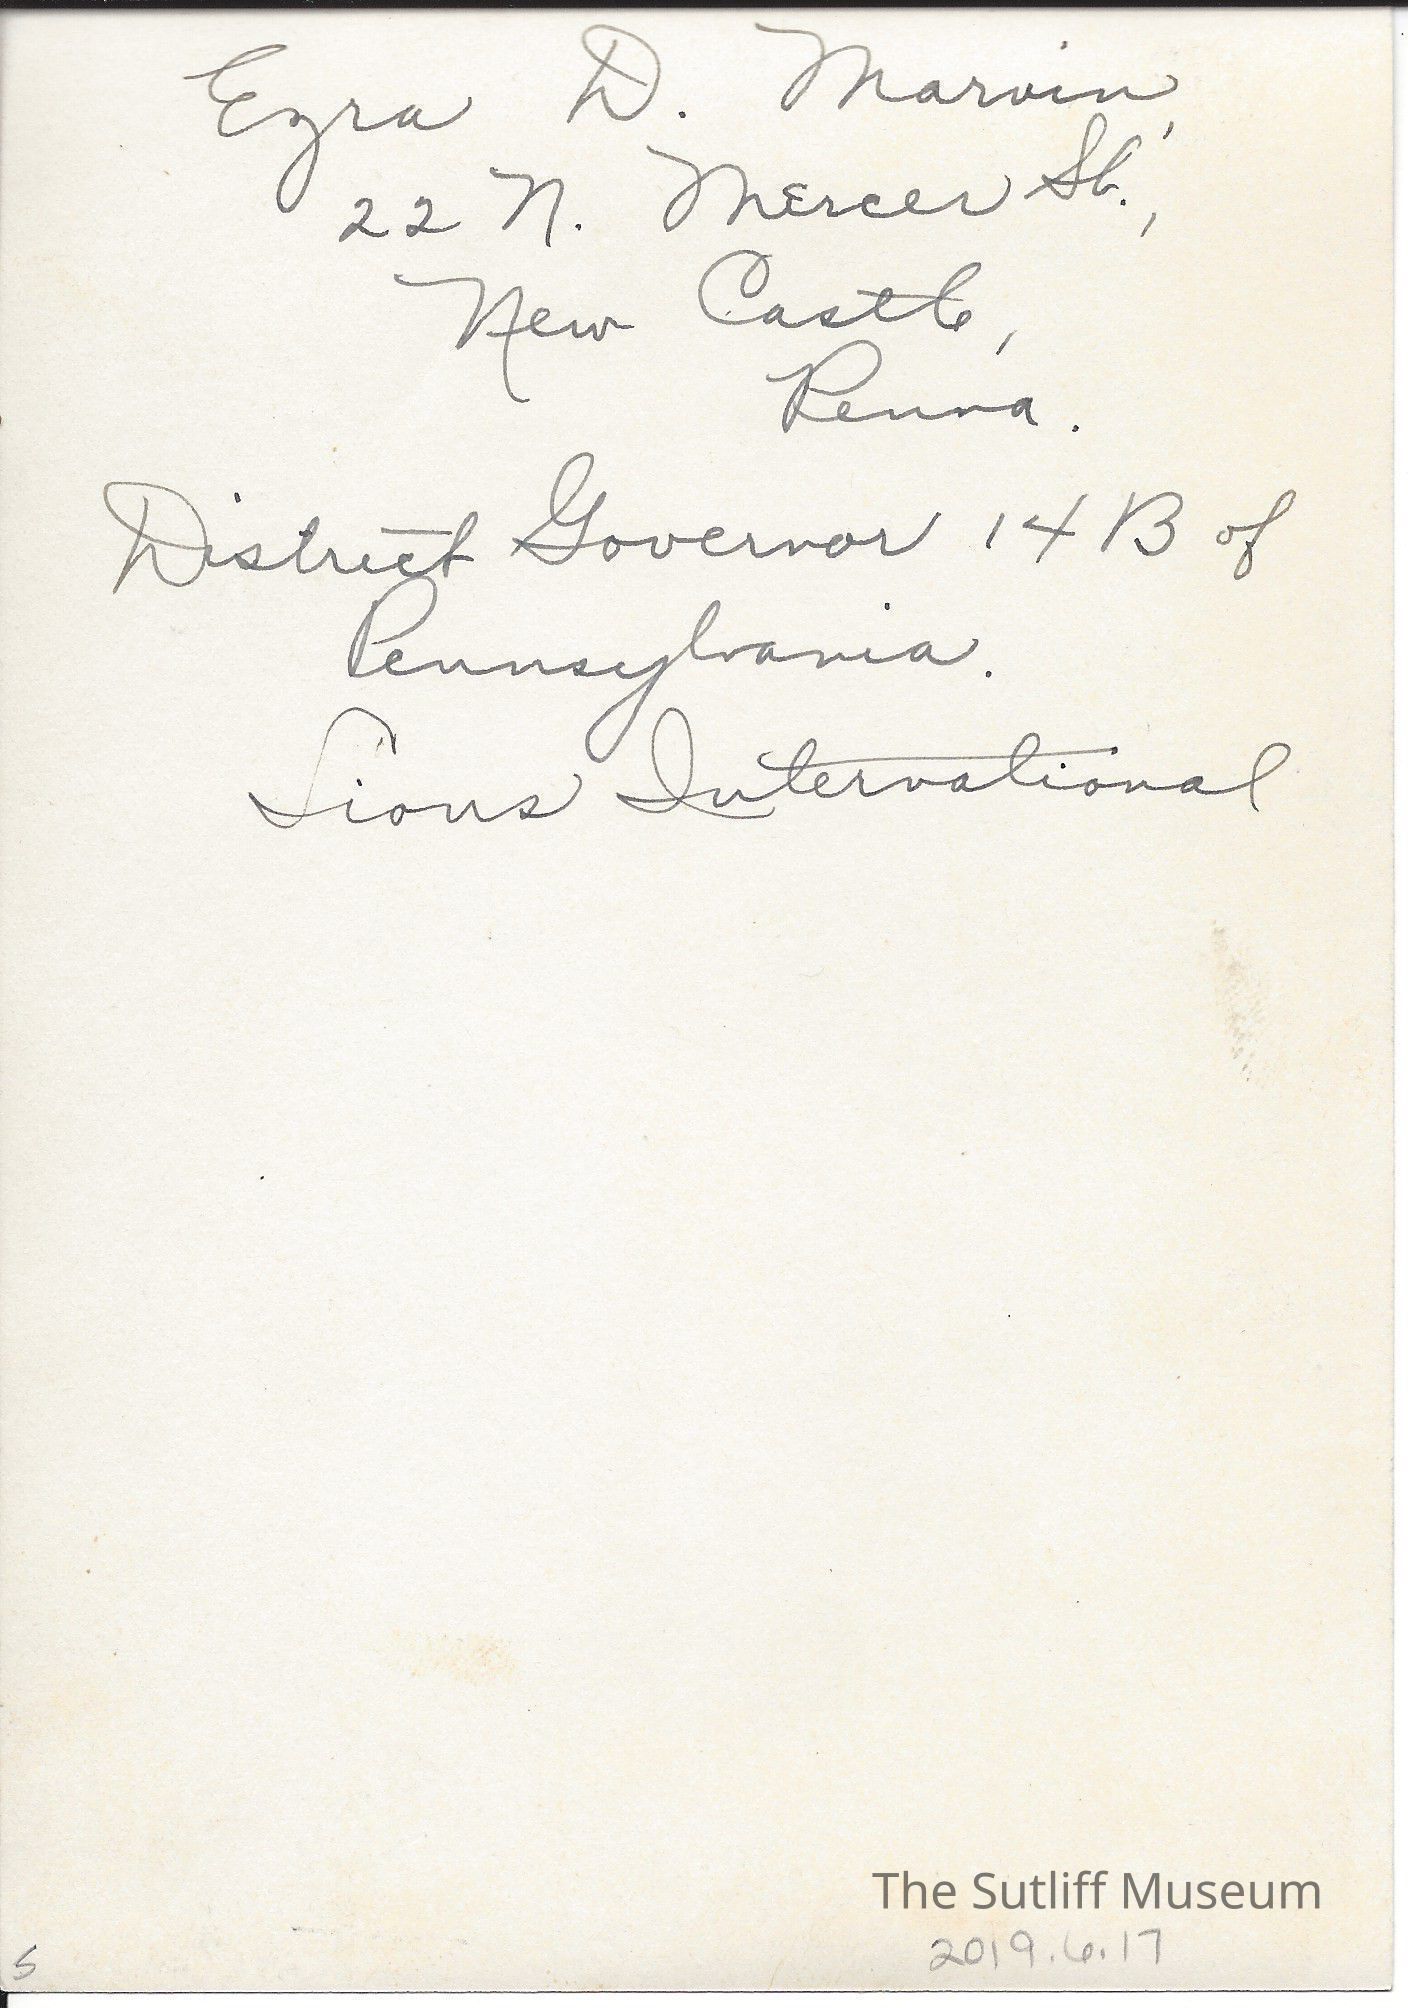 Ezra D. Marvin,
22 N. Mercer St.,
New Castle,
Penna.
District Governor 14 B of
Pennsylvania.
Lions International
The Sutliff Museum
2019.6.17
5